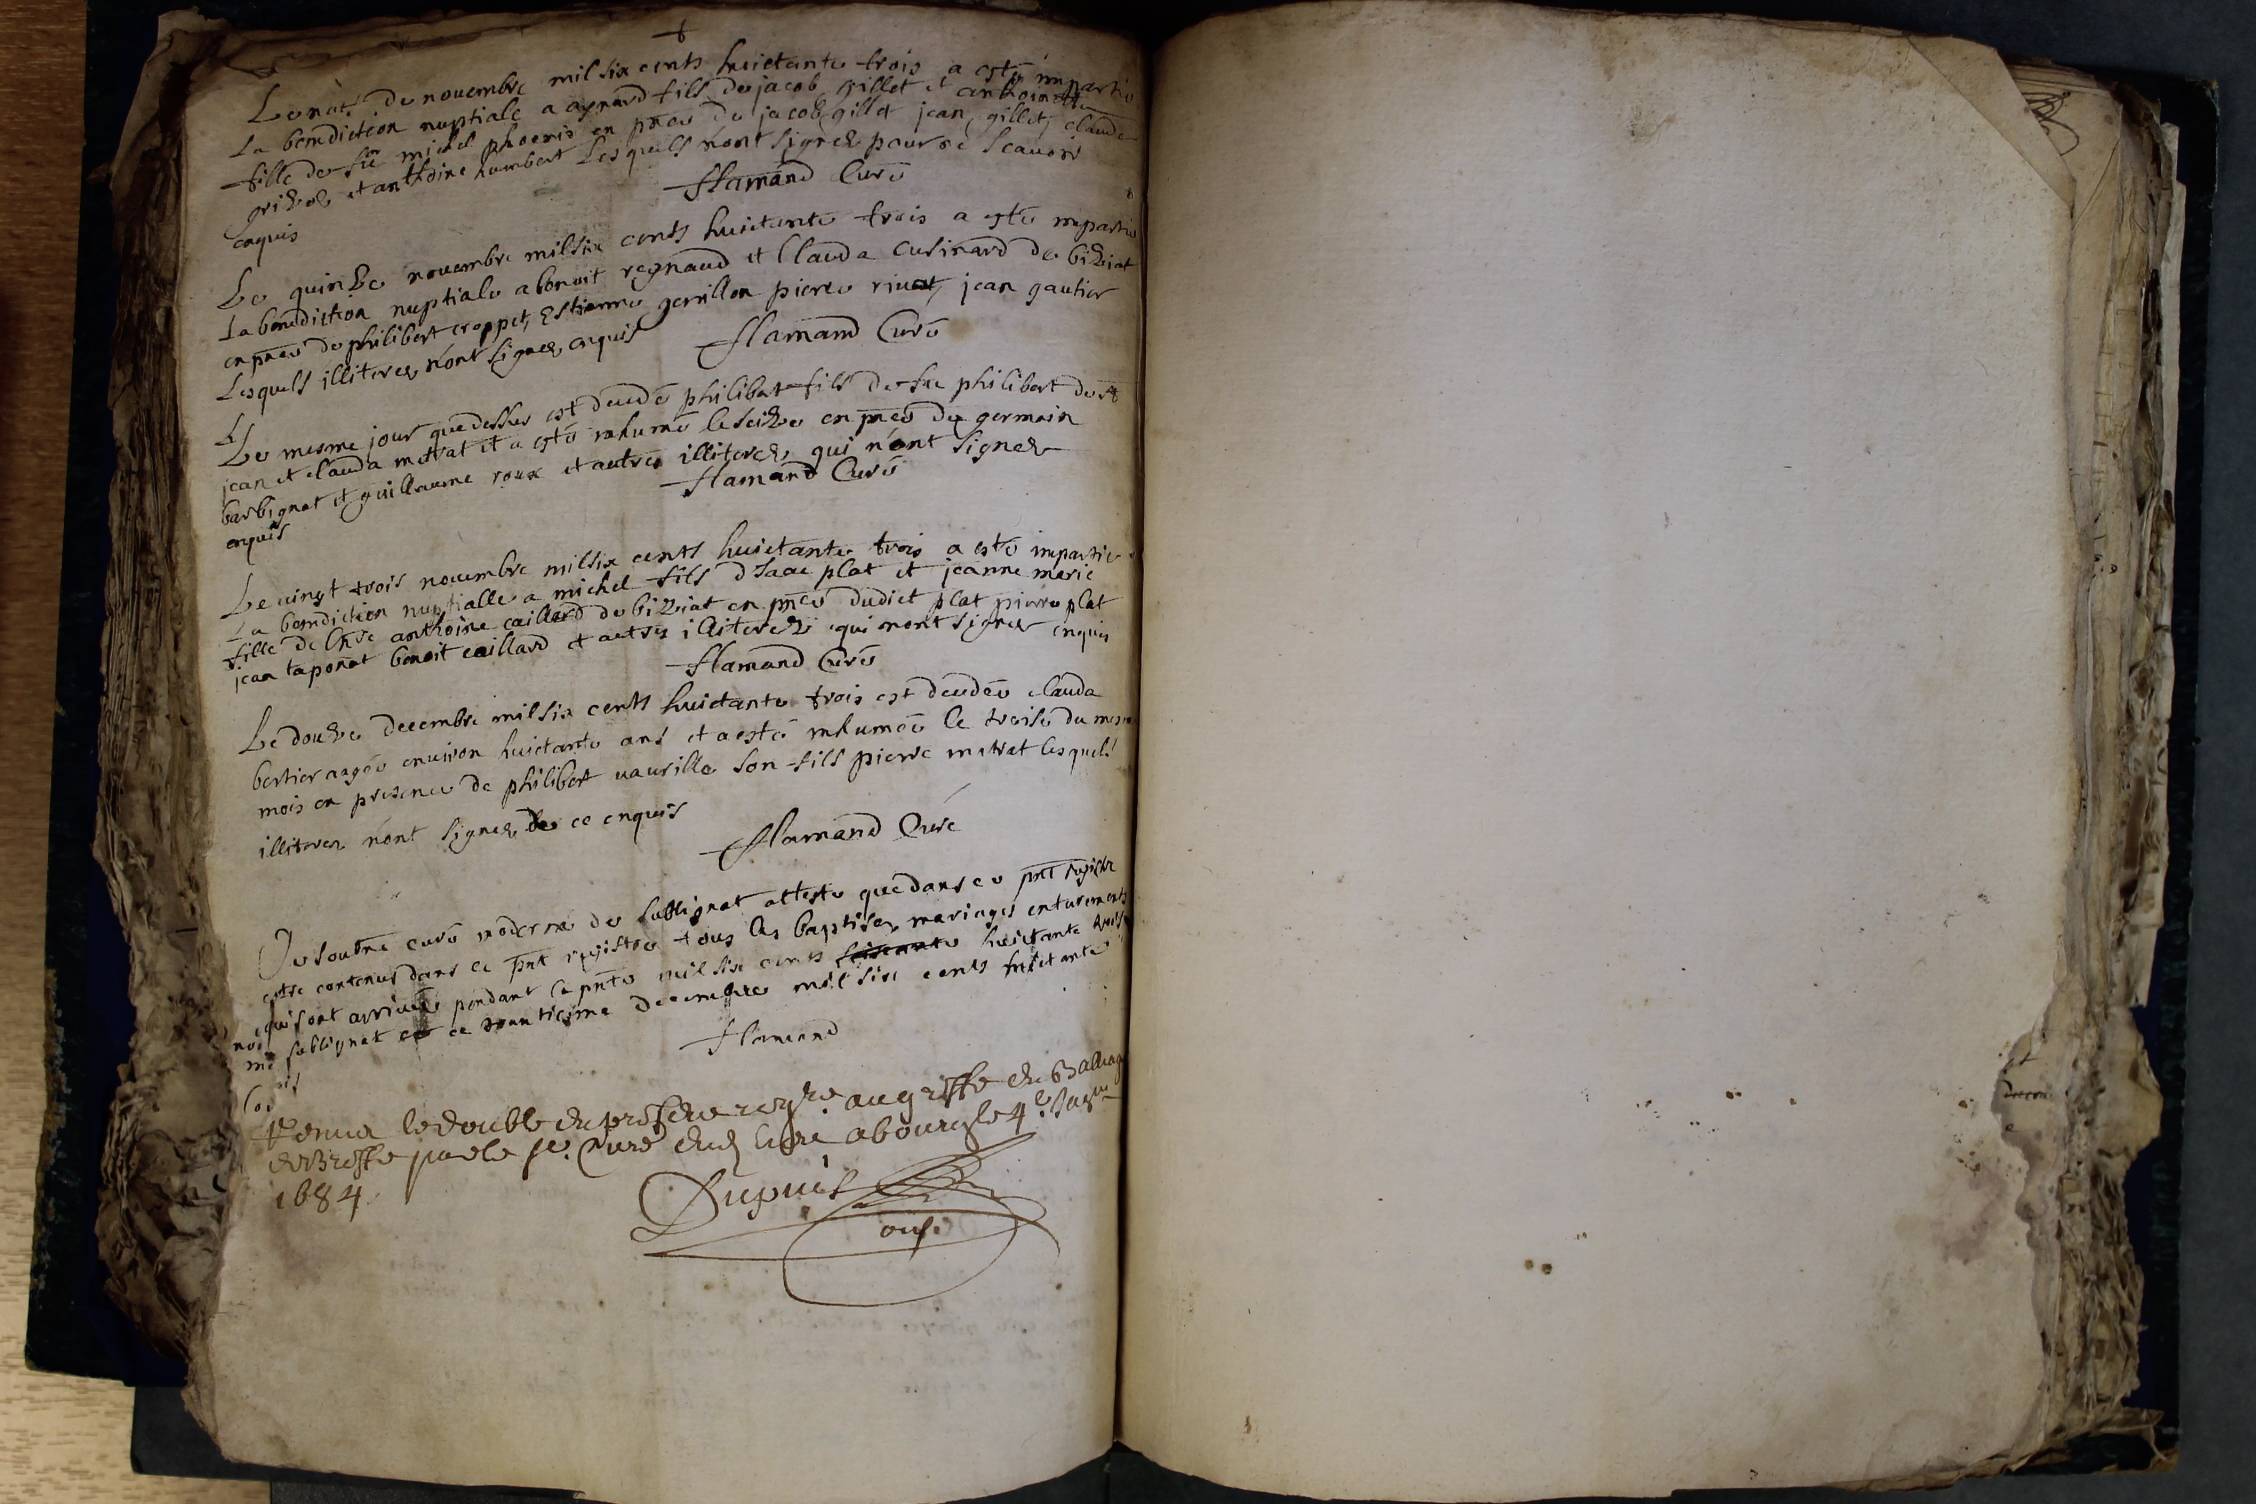 de novembre mil six cents huictante trois a esté impartie
La benediction nuptiale a aynard fils de jacob gillet et anthoinette
fille de michel en pnce de jacob gillet jean gillet, claude
et anthoine humbert Lesquels n'ont signez pour ne scavoir
enquis
flamand Curé
Le quinze novembre mil six cents huictante trois a esté impartie
La benediction nuptiale a benoit regnaud et Clauda cusinard de biziat
en pnce de philibert croppet, Estienne gonillon pierre rivat, jean gautier
Lesquels illiterez n'ont signez enquis
flamand Curé
Le mesme jour que dessus est decedé philibert fils de feu philibert de st
jean et clauda metrat et a esté inhumé le seize en pnce de germain
barbignat et guillaume roux et autres illiterez, qui n'ont signez
enquis
flamand Curé
Le vingt trois novembre mil six cents huictante trois a esté impartie
La benediction nuptialle a michel fils d'Isaac plat et jeanne marie
fille de anthoine caillard de biziat en pnce dudict plat pierre plat
jean taponat benoit caillard et autres illiterez qui n'ont signez enquis
flamand Curé
Le douze decembre mil six cents huictante trois est decedée clauda
bertier aagée environ huictante ans et a esté inhumée le treise du mesme
mois en presence de philibert vaurille son fils pierre metrat lesquels
illiterez n'ont signez de ce enquis
flamand Curé
Je soubné curé moderne de sublignat atteste que dans ce pnt registre
estre contenus dans ce pnt registre tous les baptises, mariages enterements
qui sont arrivés pendant la pnte mil six cents huictante trois
sublignat ce trentiesme decembre mil six cents huictante
trois
flamand
Remis le double du present regre au greffe du Balliage
de Bresse par le sr. Curé dud lieu a bourg le 4e. Janv
1684.
Dupuis